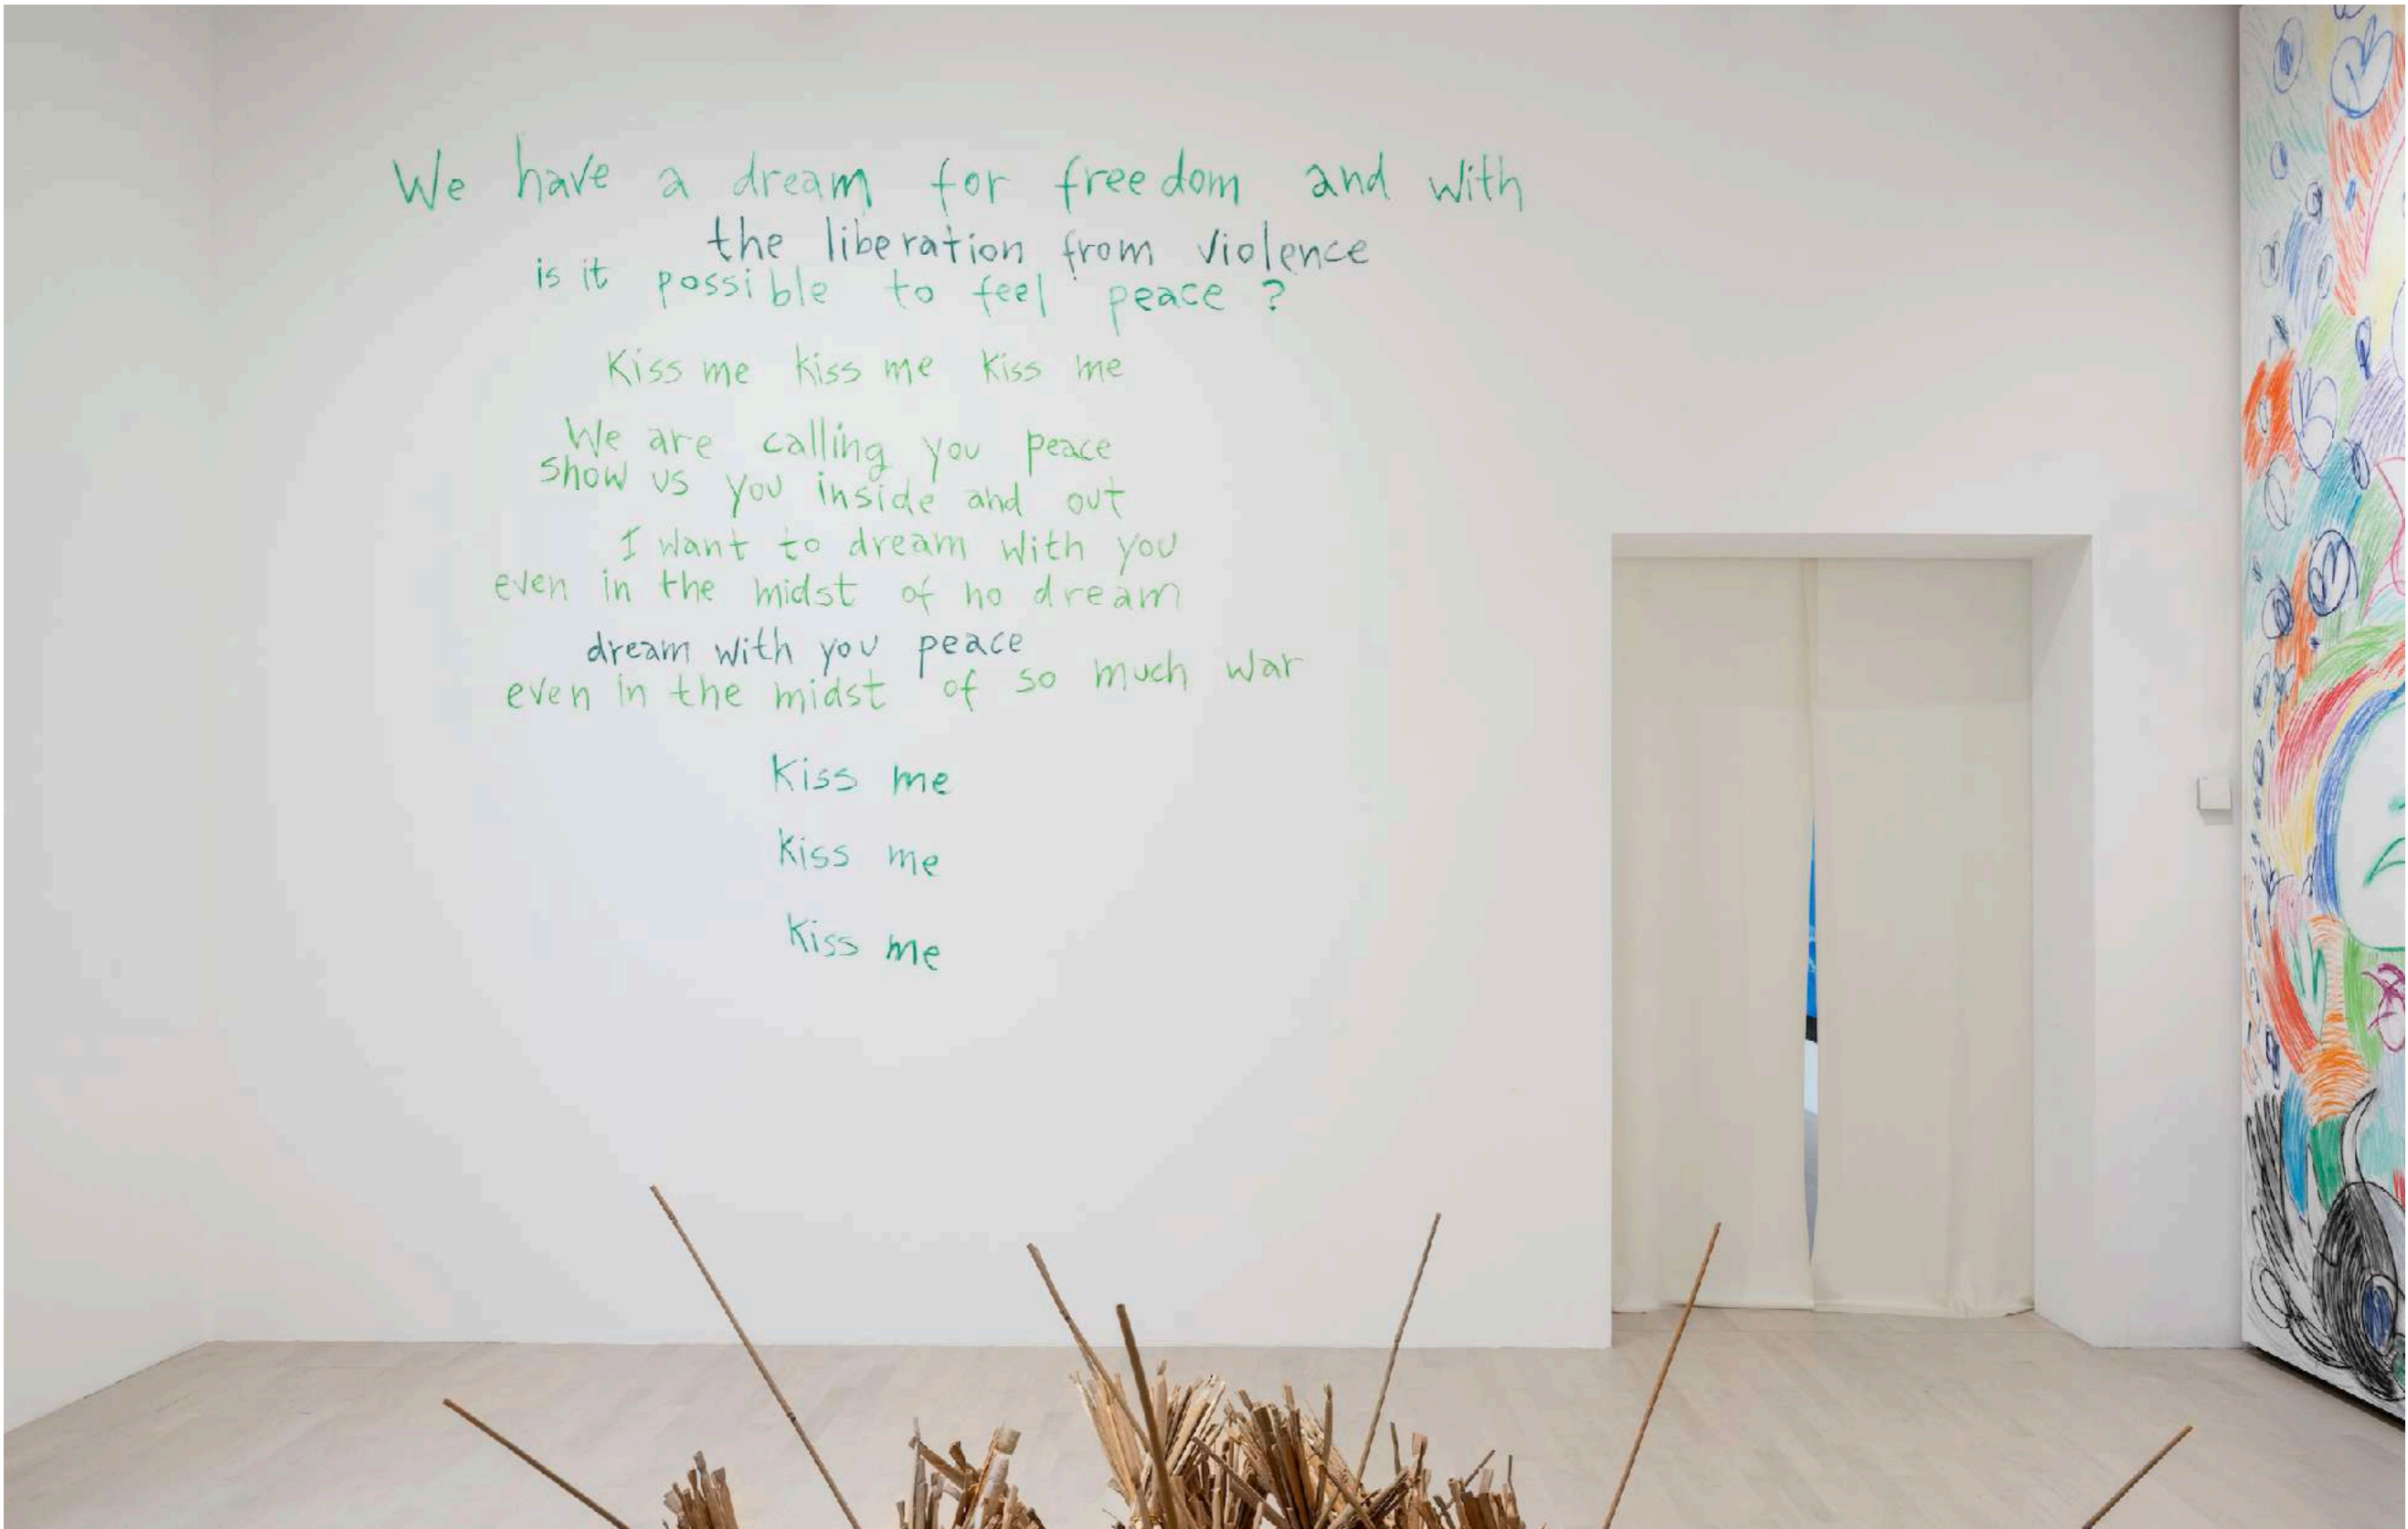 We have a dream for freedom and with
the liberation from violence
is it possible to feel peace ?
Kiss me kiss me kiss me
We are calling you peace
show us you inside and out
I want to dream with you
even in the midst of no dream
dream with you peace
even in the midst of so much war
Kiss me
Kiss me
Kiss me